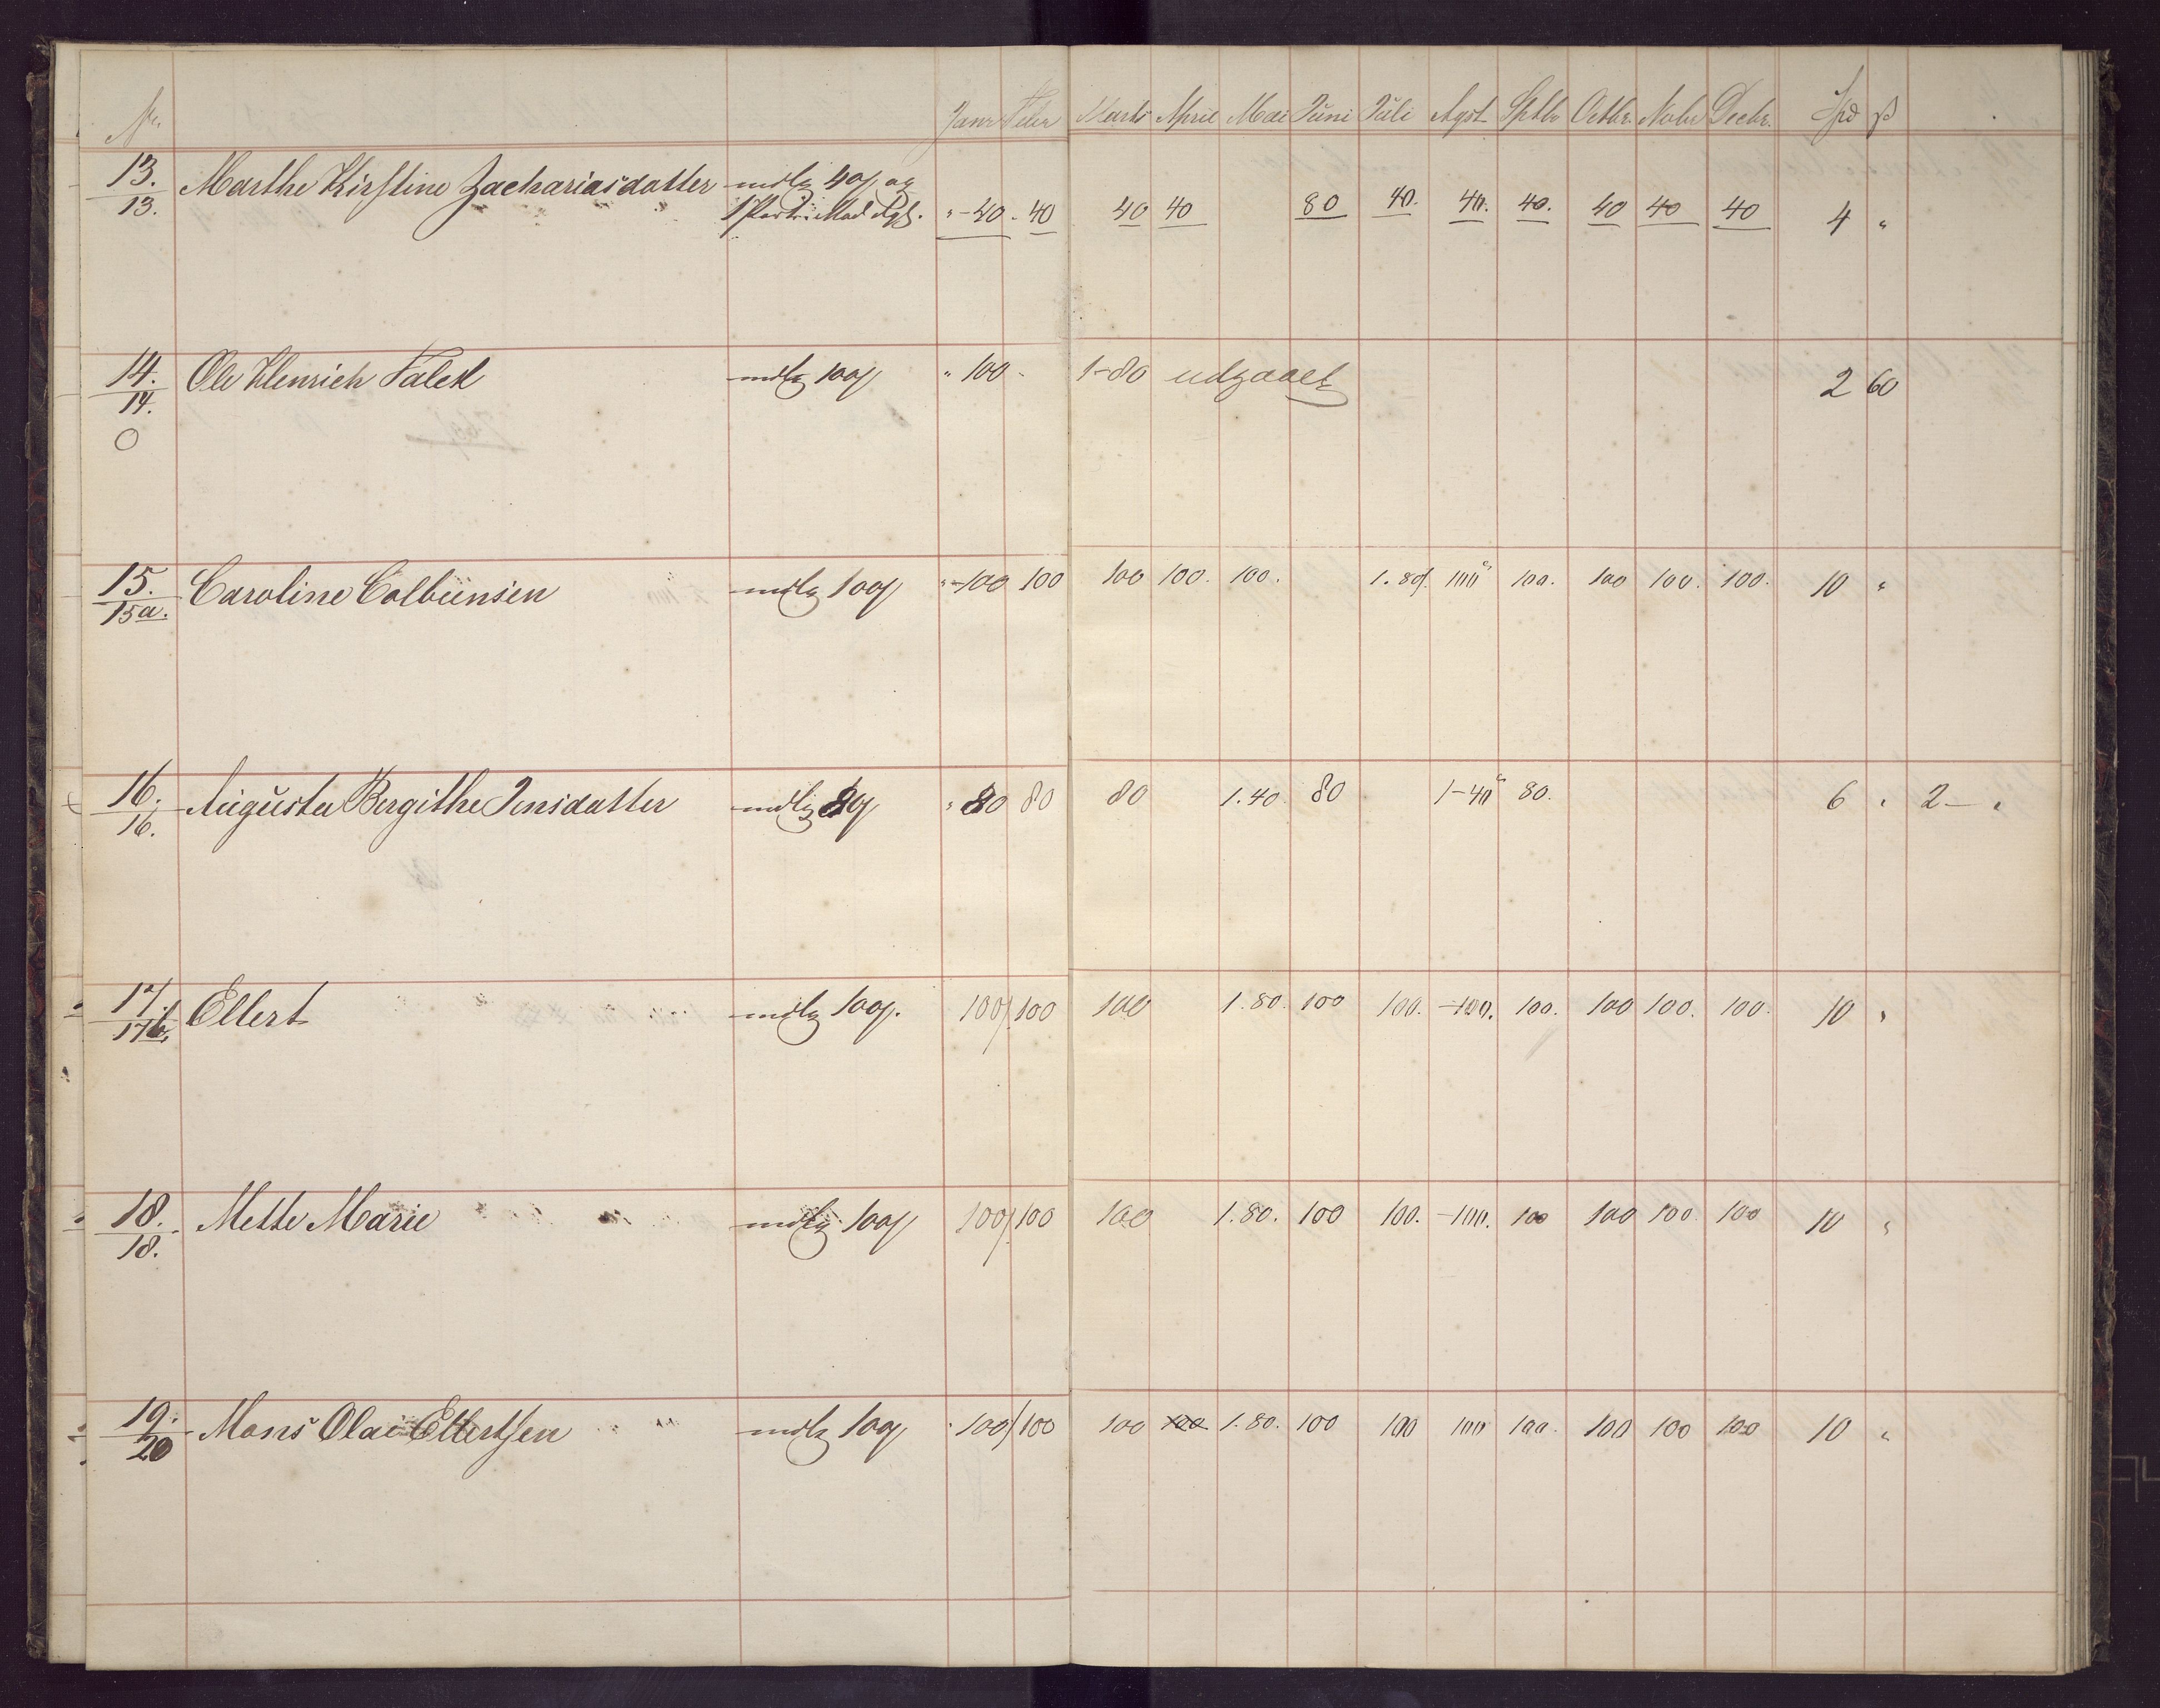 No. Janr Febr Marts April Mai Juni Juli Agst Sptbr Octbr. Nobr Decbr. Spd ß
13. Marthe Kirstine Zachariasdatter mdlg 40ß og
13. 1 Port: Mad dgl. " - 40 - 40 40 40 80 40. 40. 40. 40 40 40 4 "
14. Ole Henrich Falck mdlg 100ß " 100 - 1-80 udgaaet 2 60
14.
O
15. Caroline Colbünsen mdlg 100ß " -100 100 100 100. 100. 1. 80ß. 100" 100. 100 100. 100. 10 "
15a.
16. Augusta Bergithe Jensdatter mdlg 80ß " 80 80 80 1.40. 80 1-40" 80. 6 " 2 - "
16.
17. Ellert mdlg 100ß. 100ß 100 100 1.80. 100 100. -100. 100. 100 100. 100. 10 "
17b.
18. Mette Marie mdlg 100ß 100ß 100 100 1.80. 100 100. -100. 100 100 100. 100 10 "
18.
19. Mons Olai Ellertsen mdlg 100ß " 100ß 100 100 100 1.80. 100 100 100 100. 100 100 100 10 "
20